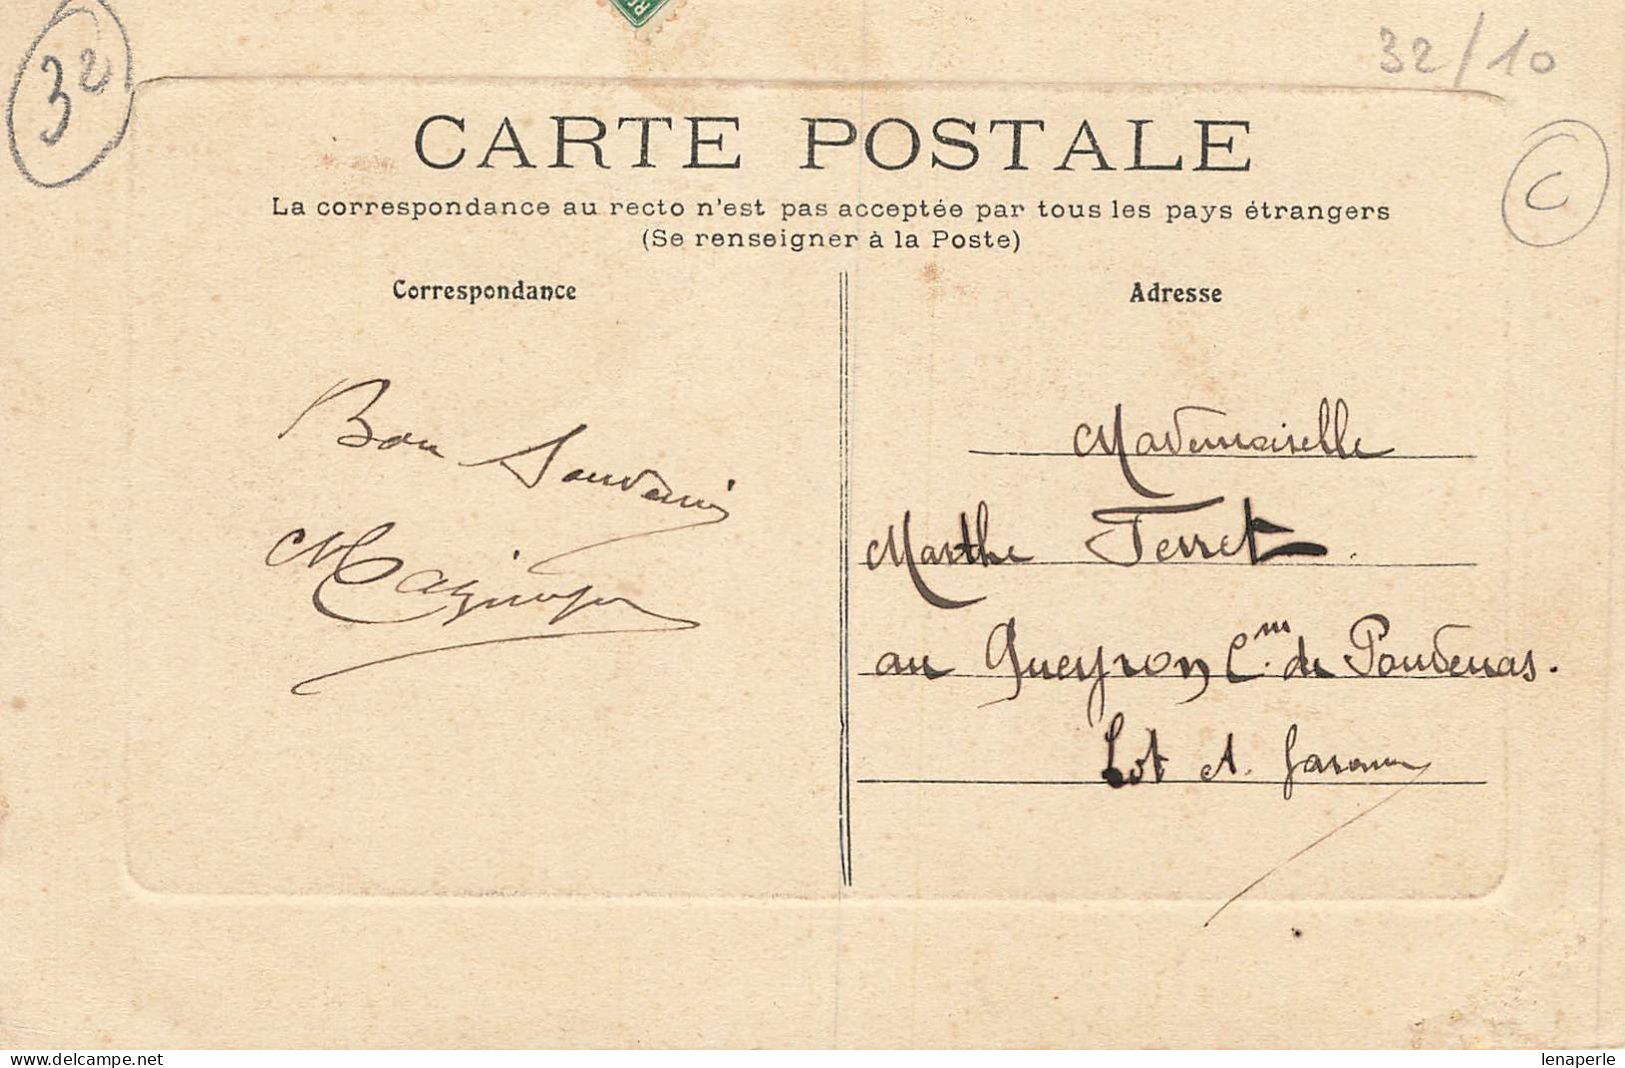 32
32/10
C
CARTE POSTALE
La correspondance au recto n'est pas acceptée par tous les pays étrangers
(Se renseigner à la Poste)
Correspondance
Adresse
Bon Souvenir
Mademoiselle
Marthe Terret.
au Gueyron C.m de Poudenas.
Lot A. Garonne
www.delcampe.net
lenaperle